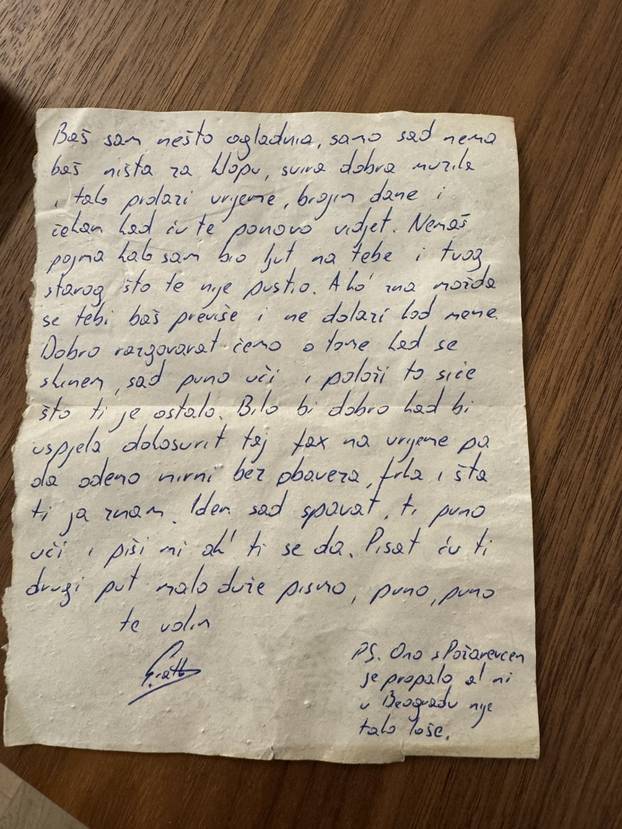 Baš sam nešto ogladnia, samo sad nema
baš ništa za klopu, svira dobra muzika
i tako prolazi vrijeme, brojim dane i
čekam kad ću te ponovo vidjet. Nemaš
pojma kako sam bio ljut na tebe i tvog
starog što te nije pustio. Ako' zna možda
se tebi baš previše i ne dolazi kod mene.
Dobro razgovarat ćemo o tome kad se
skinem, sad puno uči i položi to siće
što ti je ostalo. Bilo bi dobro kad bi
uspjela dokosurit taj fax na vrijeme pa
da odemo mirni bez obaveza, frka i šta
ti ja znam. Idem sad spavat, ti puno
uči i piši mi ak' ti se da. Pisat ću ti
drugi put malo duže pismo, puno, puno
te volim
PS. Ono s Požarevcem
je propalo al ni
u Beogradu nije
tako loše.